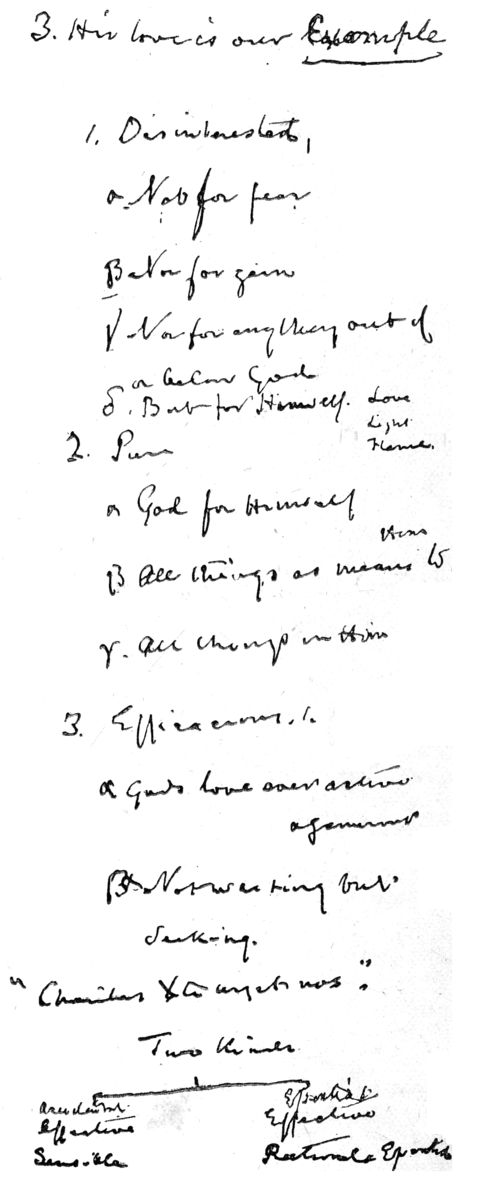 3. His love is our Example
1. Disinterested,
α. Not for fear
β. Nor for gain
γ. Nor for anything out of
or below God
δ. But for Himself. Love
Light
2. Pure
α God for Himself
Him
β All things as means to
γ. All things in Him
3. Efficacious. 1.
α God's love ever active
β. Not waiting but
seeking.
"Charitas Xti urget nos".
Two Kinds
Accidental Essential
Affective Effective
Sensible Rational &